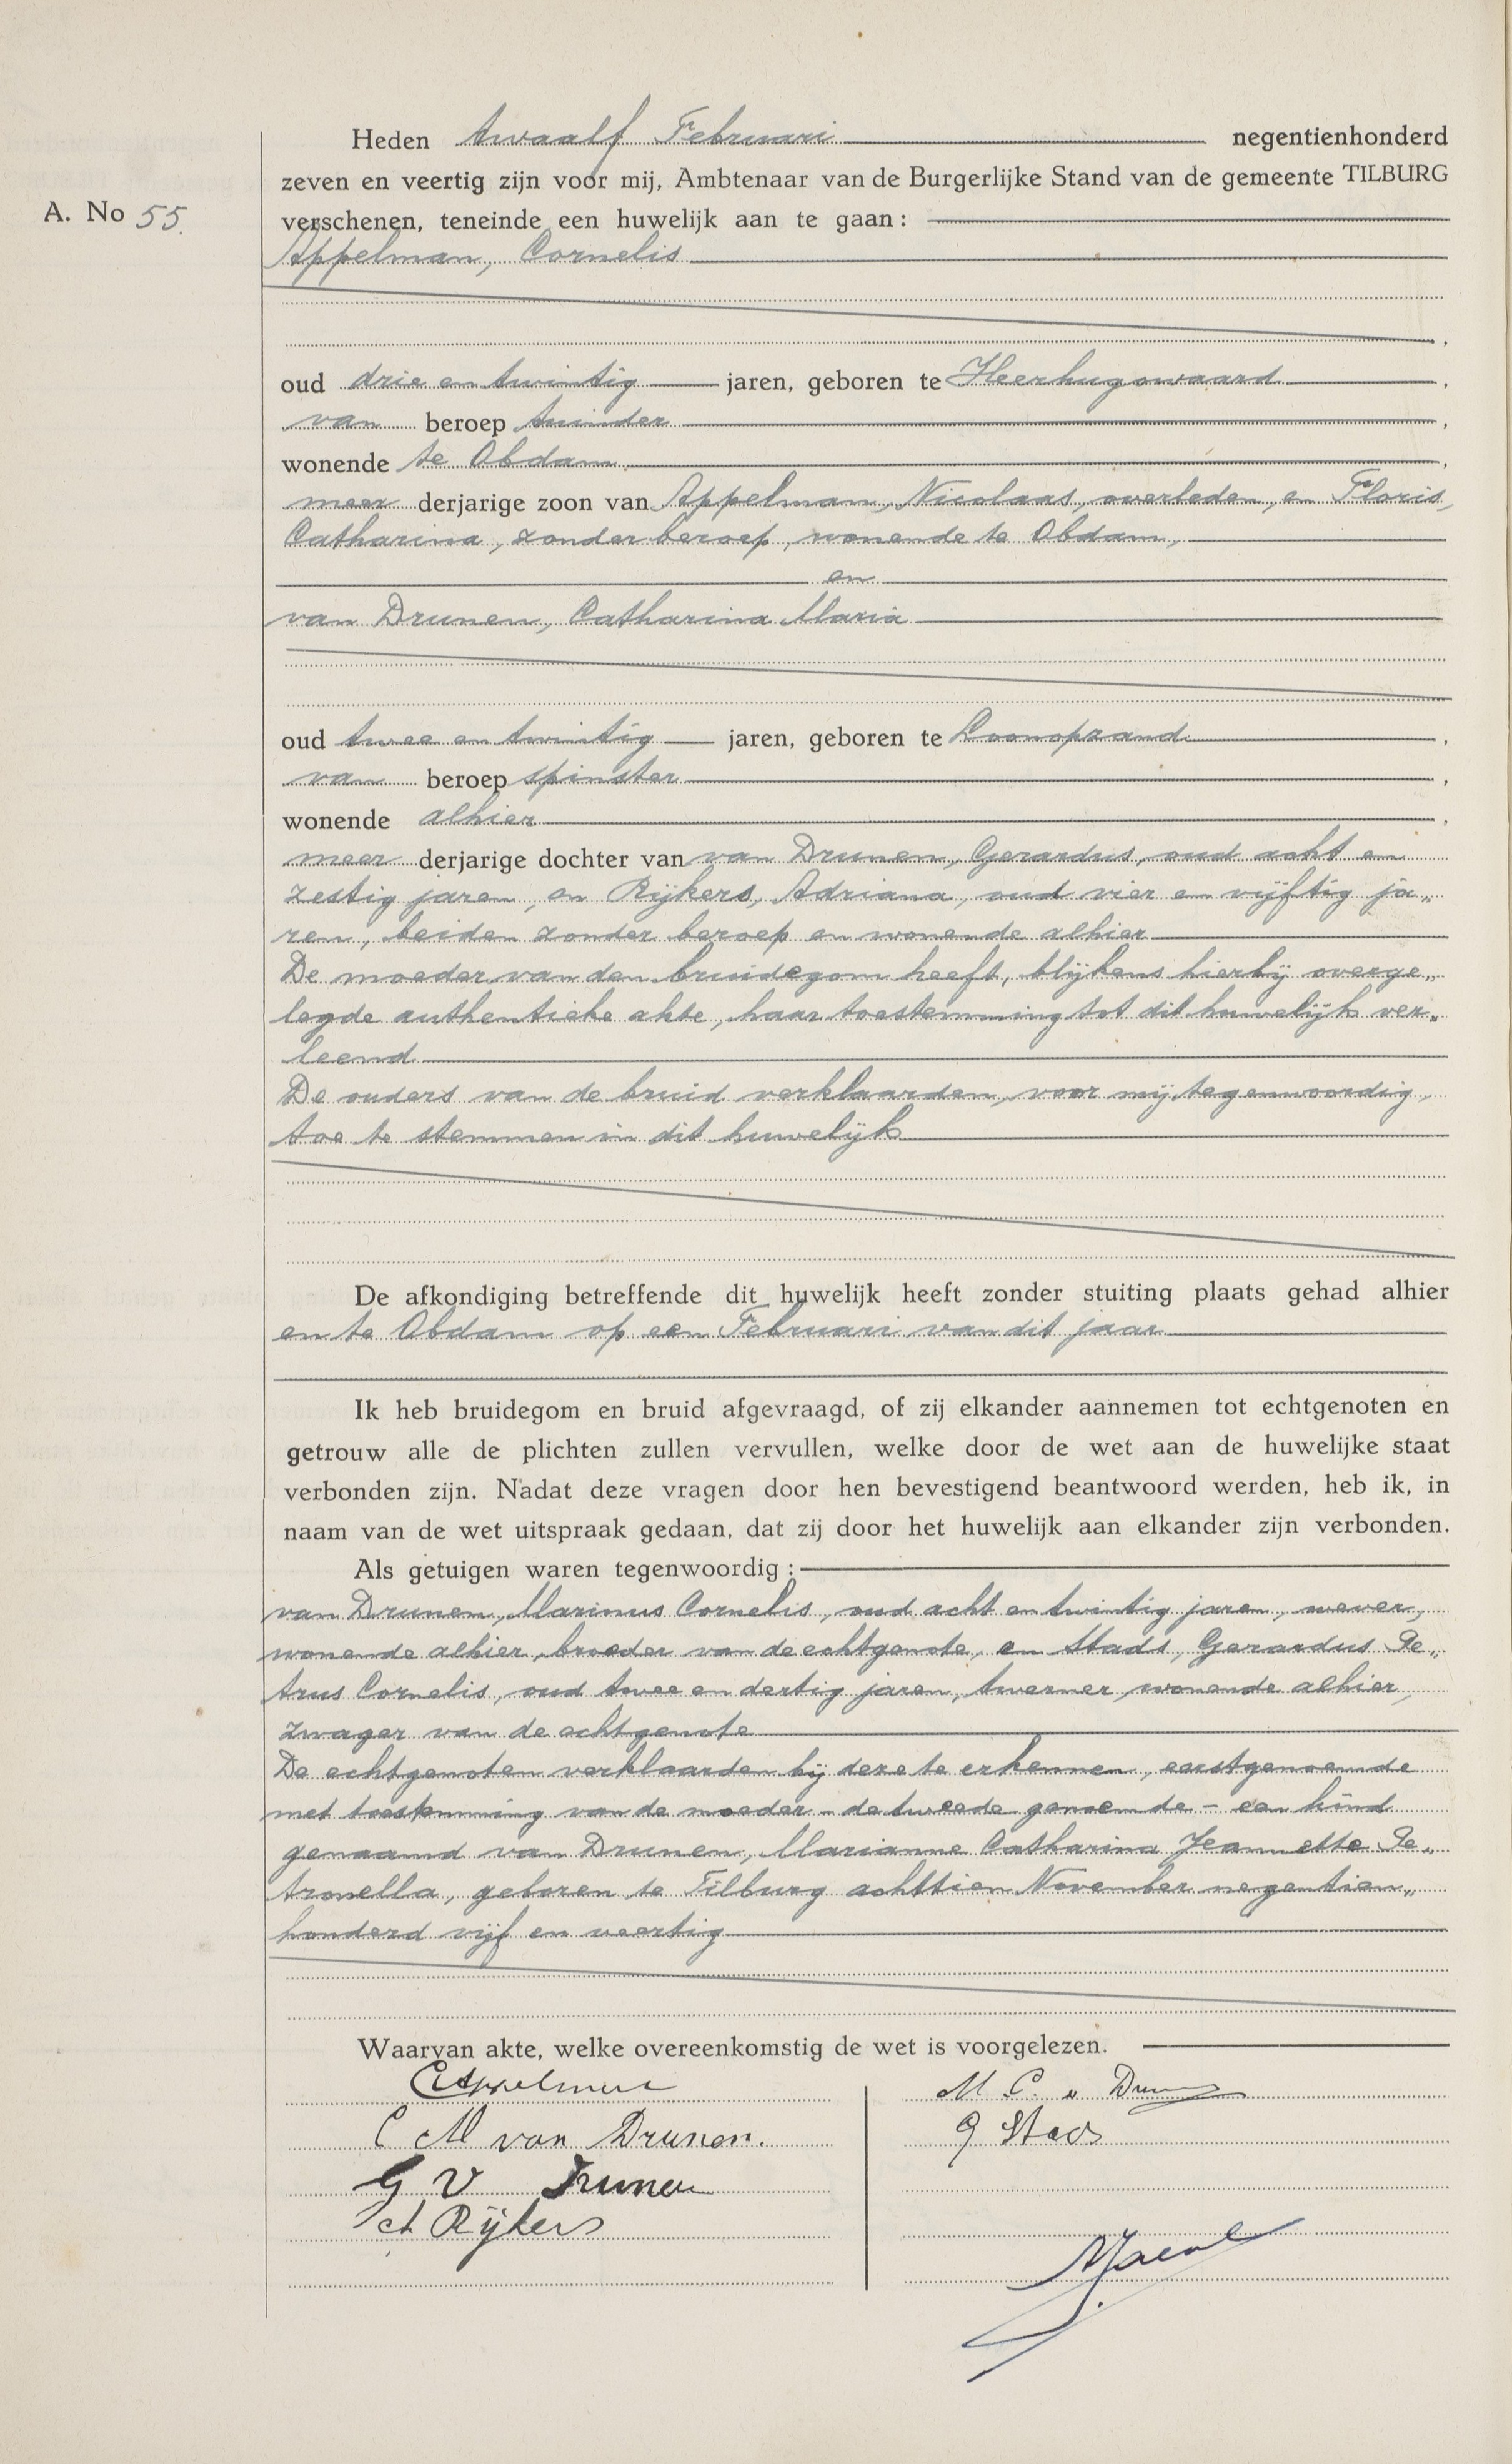 Heden twaalf Februari negentienhonderd
zeven en veertig zijn voor mij, Ambtenaar van de Burgerlijke Stand van de gemeente TILBURG
A. No 55.
verschenen, teneinde een huwelijk aan te gaan:
Appelman, Cornelis
oud drie en twintig jaren, geboren te Heerhugowaard,
van beroep tuinder,
wonende te Obdam,
meer derjarige zoon van Appelman, Nicolaas, overleden, en Floris,
Catharina, zonder beroep, wonende te Obdam,
en
van Drunen, Catharina Maria
oud twee en twintig jaren, geboren te Loonopzand,
van beroep spinster,
wonende alhier,
meer derjarige dochter van van Drunen, Gerardus, oud acht en
zestig jaren, en Rijkers, Adriana, oud vier en vijftig ja„
ren, beiden zonder beroep en wonende alhier
De moeder van den bruidegom heeft, blijkens hierbij overge„
legde authentieke akte, haar toestemming tot dit huwelijk ver„
leend
De ouders van de bruid verklaarden, voor mij tegenwoordig,
toe te stemmen in dit huwelijk
De afkondiging betreffende dit huwelijk heeft zonder stuiting plaats gehad alhier
en te Obdam op een Februari van dit jaar
Ik heb bruidegom en bruid afgevraagd, of zij elkander aannemen tot echtgenoten en
getrouw alle de plichten zullen vervullen, welke door de wet aan de huwelijke staat
verbonden zijn. Nadat deze vragen door hen bevestigend beantwoord werden, heb ik, in
naam van de wet uitspraak gedaan, dat zij door het huwelijk aan elkander zijn verbonden.
Als getuigen waren tegenwoordig:
van Drunen, Marinus Cornelis, oud acht en twintig jaren, wever,
wonende alhier, broeder van de echtgenote, en Stads, Gerardus Pe„
trus Cornelis, oud twee en dertig jaren, twerner, wonende alhier,
zwager van de echtgenote
De echtgenoten verklaarden bij deze te erkennen, eerstgenoemde
met toestemming van de moeder - de tweede genoemde - een kind
genaamd van Drunen, Marianne Catharina Jeannette Pe„
tronella, geboren te Tilburg achttien November negentien„
honderd vijf en veertig
Waarvan akte, welke overeenkomstig de wet is voorgelezen.
C Appelman
M C. v Drunen
C M van Drunen.
G Stads
G v Drunen
A Rijkers